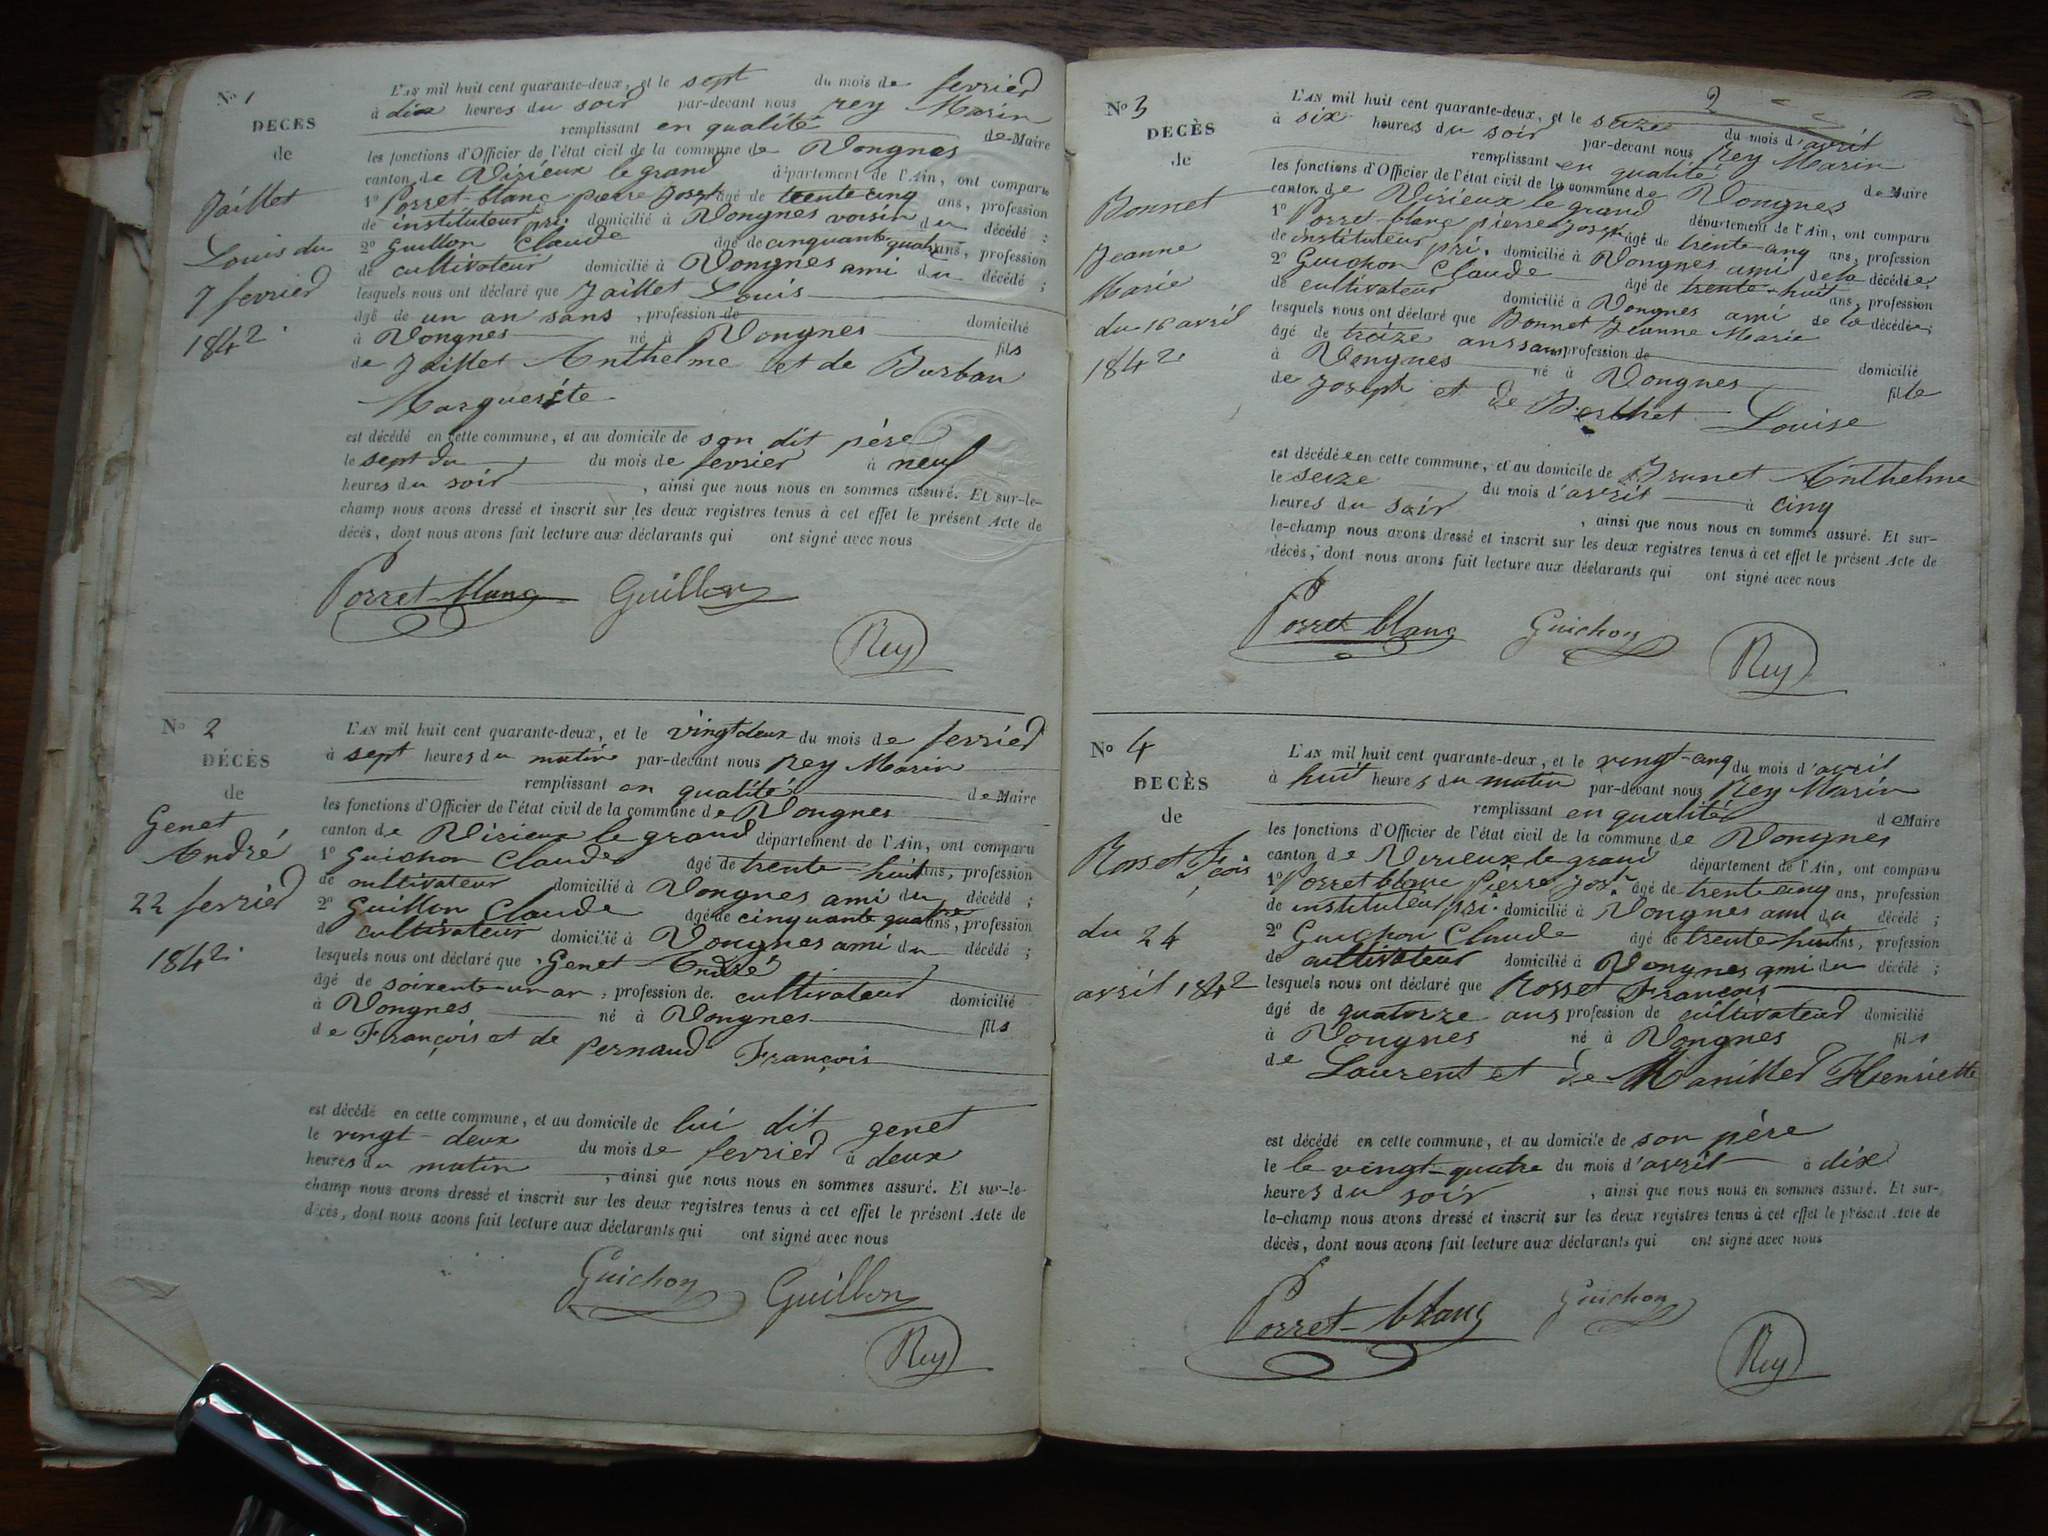 No 1
DECES
de
Jaillet
Louis du
7 fevrier
1842.
L'AN mil huit cent quarante-deux, et le sept du mois de fevrier
à dix heures du soir par-devant nous rey Marin
remplissant en qualité de Maire
les fonctions d'Officier de l'état civil de la commune de Vongnes
canton de Virieux le grand département de l'Ain, ont comparu
1º Porret-blanc pierre Josph âgé de trente cinq ans, profession
de instituteur pri. domicilié à Vongnes voisin du décédé ;
2º Guillon Claude âgé de cinquante quatre ans, profession
de cultivateur domicilié à Vongnes ami du décédé ;
lesquels nous ont déclaré que Jaillet Louis
âgé de un an sans , profession de domicilié
à Vongnes né à Vongnes fils
de Jaillet Anthelme et de Burban
Marguerite
est décédé en cette commune, et au domicile de son dit père
le sept du du mois de fevrier à neuf
heures du soir , ainsi que nous nous en sommes assuré. Et sur-le-
champ nous avons dressé et inscrit sur les deux registres tenus à cet effet le présent Acte de
décès, dont nous avons fait lecture aux déclarants qui ont signé avec nous
Porret-blanc Guillon
Rey
No 2
DÉCÈS
de
Genet
André
22 fevrier
1842.
L'AN mil huit cent quarante-deux, et le vingt deux du mois de fevrier
à sept heures du matin par-devant nous Rey Marin
remplissant en qualité de Maire
les fonctions d'Officier de l'état civil de la commune de Vongnes
canton de Virieux le grand département de l'Ain, ont comparu
1º Guichon Claude âgé de trente-huit ans, profession
de cultivateur domicilié à Vongnes ami du décédé ;
2º Guillon Claude âgé de cinquante quatre ans, profession
de cultivateur domicilié à Vongnes ami du décédé ;
lesquels nous ont déclaré que Genet André
âgé de soixente-un an , profession de cultivateur domicilié
à Vongnes né à Vongnes fils
de François et de pernaud François
est décédé en cette commune, et au domicile de lui dit genet
le vingt-deux du mois de fevrier à deux
heures du matin , ainsi que nous nous en sommes assuré. Et sur-le-
champ nous avons dressé et inscrit sur les deux registres tenus à cet effet le présent Acte de
décès, dont nous avons fait lecture aux déclarants qui ont signé avec nous
Guichon Guillon
Rey
2
No 3
DECÈS
de
Bonnet
Jeanne
Marie
du 16 avril
1842
L'AN mil huit cent quarante-deux, et le seize du mois d'avril
à six heures du soir par-devant nous Rey Marin
remplissant en qualité de Maire
les fonctions d'Officier de l'état civil de la commune de Vongnes
canton de Virieux le grand département de l'Ain, ont comparu
1º Porret-blanc pierre Josph âgé de trente-cinq ans, profession
de instituteur pri. domicilié à Vongnes ami de la décédée ;
2º Guichon Claude âgé de trente-huit ans, profession
de cultivateur domicilié à Vongnes ami de la décédée ;
lesquels nous ont déclaré que Bonnet Jeanne Marie
âgé de treize ans sans profession de domicilié
à Vongnes né à Vongnes fille
de Joseph et de Berthet Louise
est décédée en cette commune, et au domicile de Brunet Anthelme
le seize du mois d'avril à cinq
heures du soir , ainsi que nous nous en sommes assuré. Et sur-
le-champ nous avons dressé et inscrit sur les deux registres tenus à cet effet le présent Acte de
décès, dont nous avons fait lecture aux déclarants qui ont signé avec nous
Porret-blanc Guichon
Rey
No 4
DECÈS
de
Rosset Fçois
du 24
avril 1842
L'AN mil huit cent quarante-deux, et le vingt-cinq du mois d'avril
à huit heures du matin par-devant nous Rey Marin
remplissant en qualité de Maire
les fonctions d'Officier de l'état civil de la commune de Vongnes
canton de Virieux le grand département de l'Ain, ont comparu
1º Porret blanc Pierre Josh. âgé de trente cinq ans, profession
de instituteur pri. domicilié à Vongnes ami du décédé ;
2º Guichon Claude âgé de trente huit ans, profession
de cultivateur domicilié à Vongnes ami du décédé ;
lesquels nous ont déclaré que Rosset François
âgé de quatorze ans profession de cultivateur domicilié
à Vongnes né à Vongnes fils
de Laurent et de Manillier Henriette
est décédé en cette commune, et au domicile de son père
le le vingt-quatre du mois d'avril à dix
heures du soir , ainsi que nous nous en sommes assuré. Et sur-
le-champ nous avons dressé et inscrit sur les deux registres tenus à cet effet le présent Acte de
décès, dont nous avons fait lecture aux déclarants qui ont signé avec nous
Porret-blanc Guichon
Rey